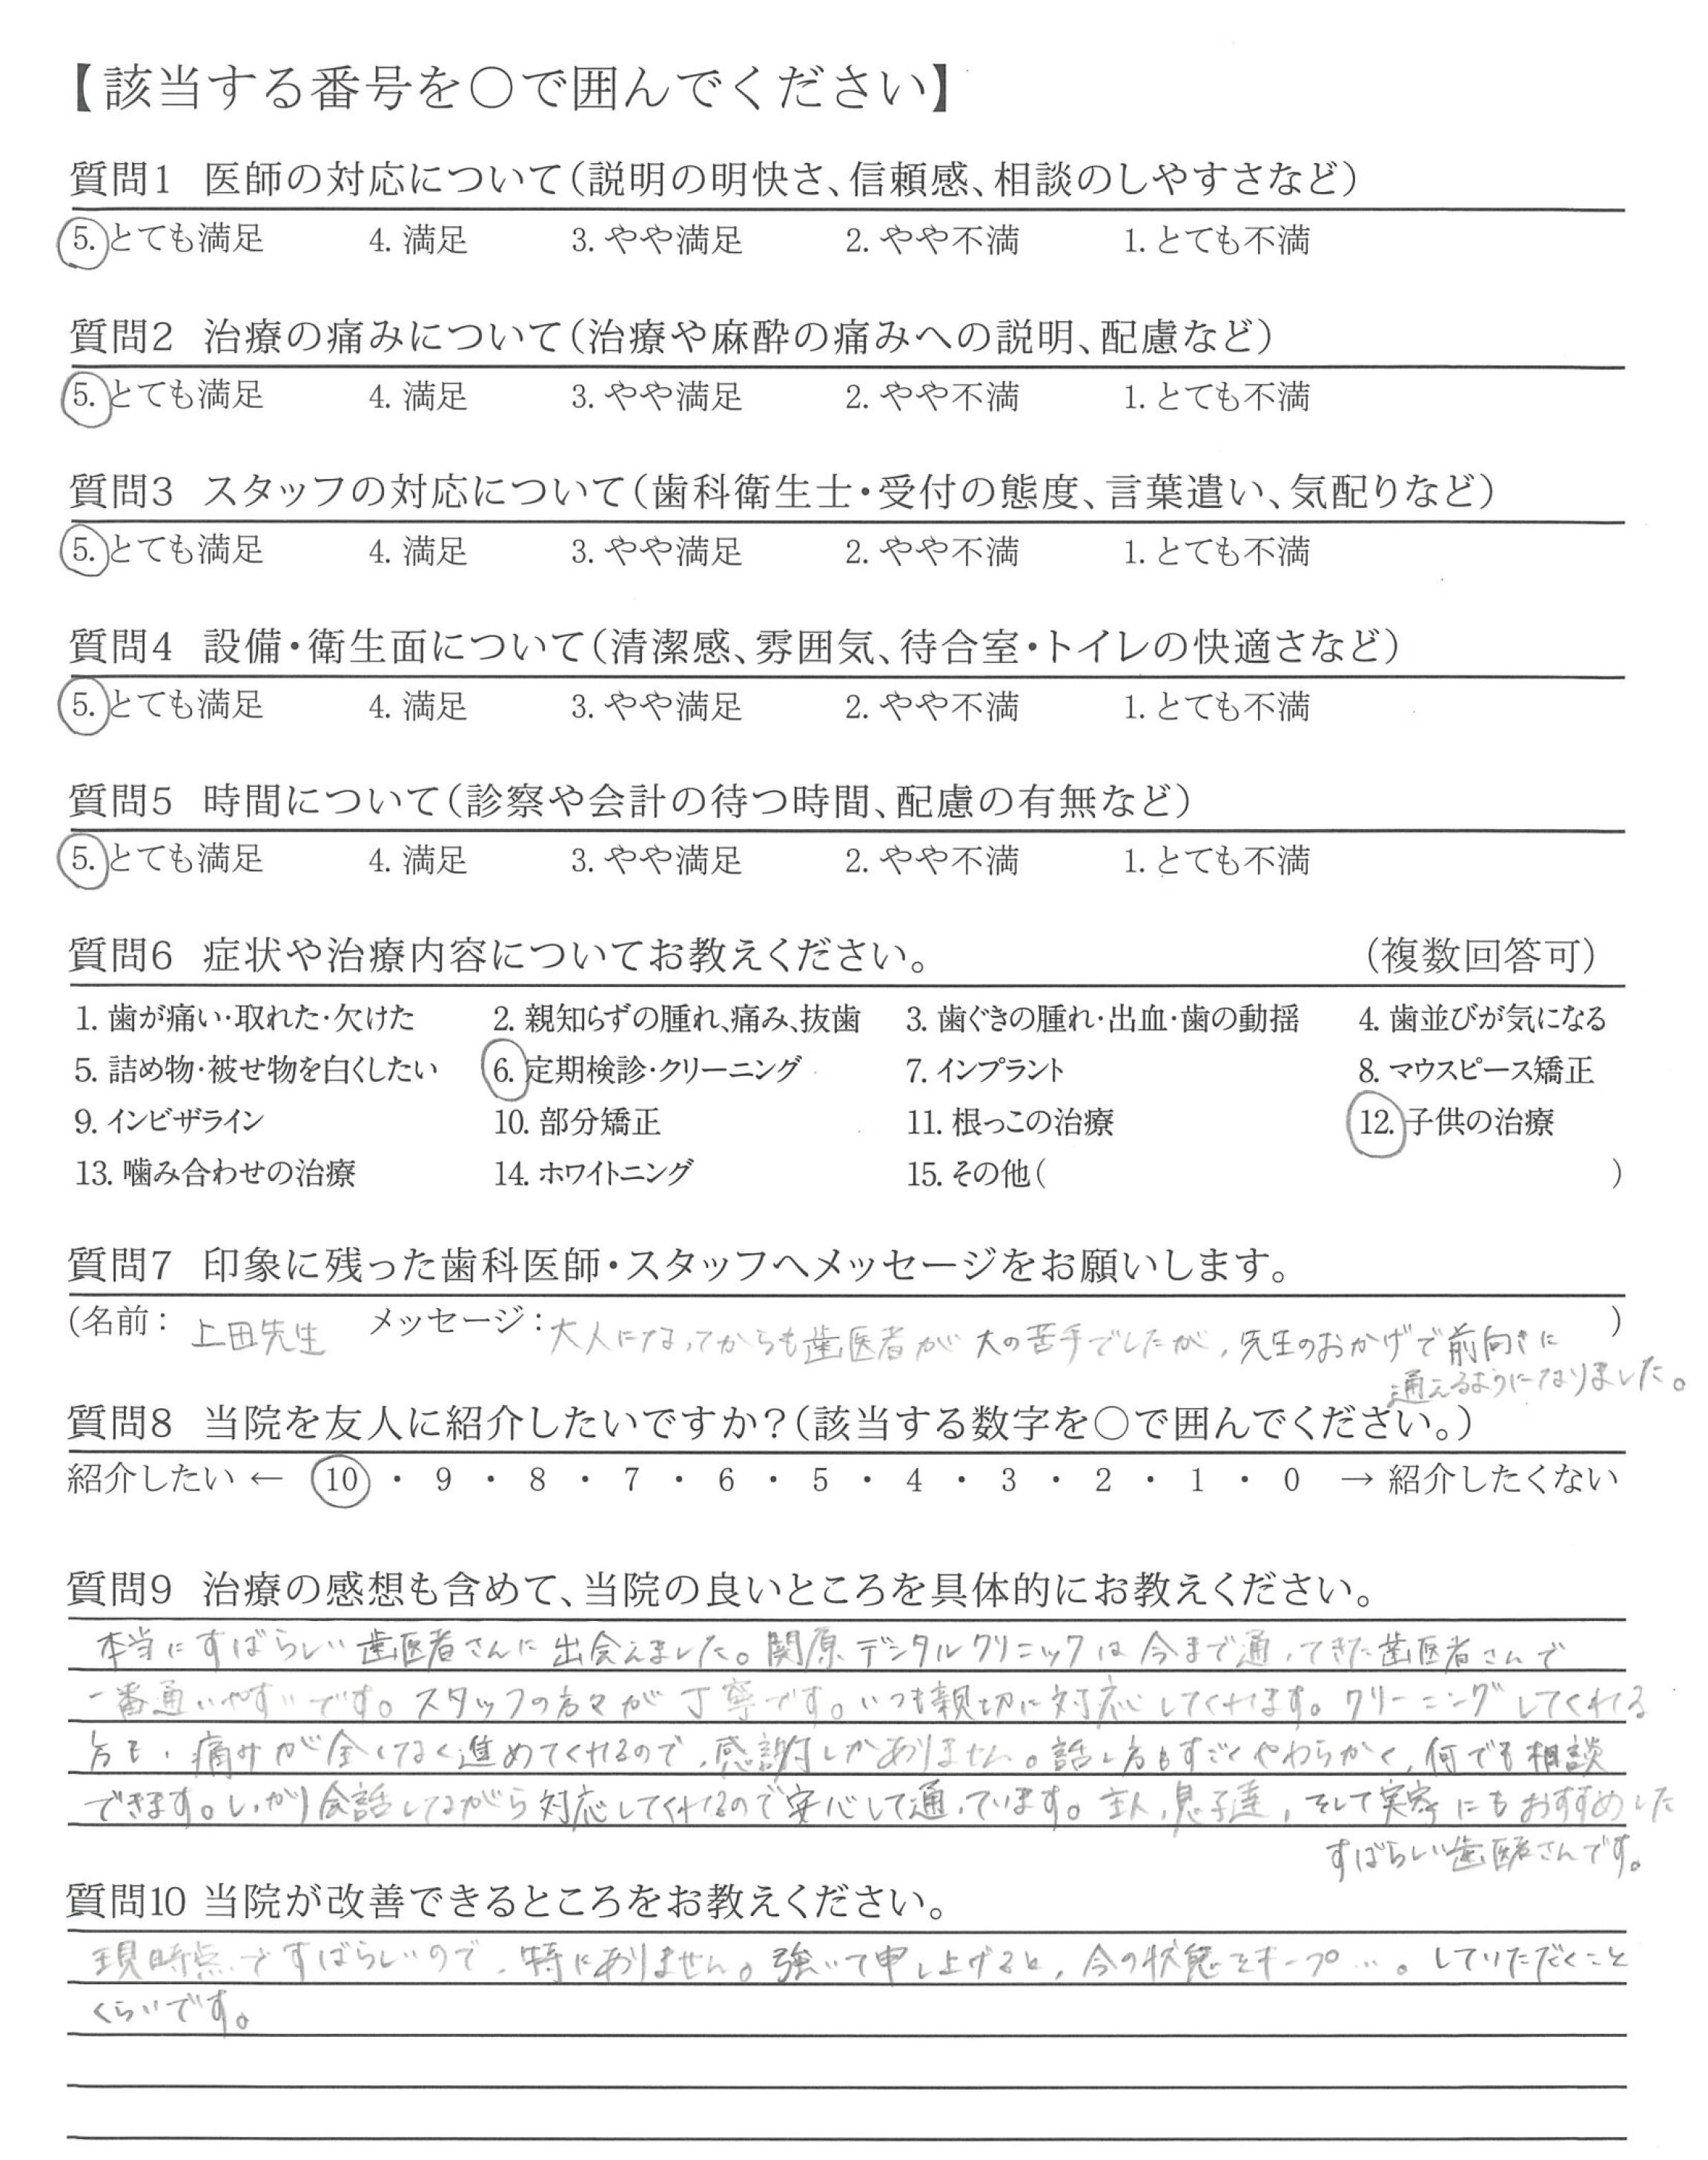 【該当する番号を○で囲んでください】
質問1 医師の対応について(説明の明快さ、信頼感、相談のしやすさなど)
5. とても満足 4. 満足 3. やや満足 2. やや不満 1. とても不満
質問2 治療の痛みについて(治療や麻酔の痛みへの説明、配慮など)
5. とても満足 4. 満足 3. やや満足 2. やや不満 1. とても不満
質問3 スタッフの対応について(歯科衛生士・受付の態度、言葉遣い、気配りなど)
5. とても満足 4. 満足 3. やや満足 2. やや不満 1. とても不満
質問4 設備・衛生面について(清潔感、雰囲気、待合室・トイレの快適さなど)
5. とても満足 4. 満足 3. やや満足 2. やや不満 1. とても不満
質問5 時間について(診察や会計の待つ時間、配慮の有無など)
5. とても満足 4. 満足 3. やや満足 2. やや不満 1. とても不満
質問6 症状や治療内容についてお教えください。 (複数回答可)
1. 歯が痛い・取れた・欠けた 2. 親知らずの腫れ、痛み、抜歯 3. 歯ぐきの腫れ・出血・歯の動揺 4. 歯並びが気になる
5. 詰め物・被せ物を白くしたい 6. 定期検診・クリーニング 7. インプラント 8. マウスピース矯正
9. インビザライン 10. 部分矯正 11. 根っこの治療 12. 子供の治療
13. 噛み合わせの治療 14. ホワイトニング 15. その他( )
質問7 印象に残った歯科医師・スタッフへメッセージをお願いします。
(名前: 上田先生 メッセージ: 大人になってからも歯医者が大の苦手でしたが、先生のおかげで前向きに )
通えるようになりました。
質問8 当院を友人に紹介したいですか?(該当する数字を○で囲んでください。)
紹介したい ← 10 ・ 9 ・ 8 ・ 7 ・ 6 ・ 5 ・ 4 ・ 3 ・ 2 ・ 1 ・ 0 → 紹介したくない
質問9 治療の感想も含めて、当院の良いところを具体的にお教えください。
本当にすばらしい歯医者さんに出会えました。関原デンタルクリニックは今まで通ってきた歯医者さんで
一番通いやすいです。スタッフの方々が丁寧です。いつも親切に対応してくれます。クリーニングしてくれる
方も、痛みが全くなく進めてくれるので、感謝しかありません。話し方もすごくやわらかく、何でも相談
できます。しっかり会話しながら対応してくれるので安心して通っています。主人、息子達、そして実家にもおすすめした
すばらしい歯医者さんです。
質問10 当院が改善できるところをお教えください。
現時点ですばらしいので、特にありません。強いて申し上げると、今の状態をキープ…。していただくこと
くらいです。